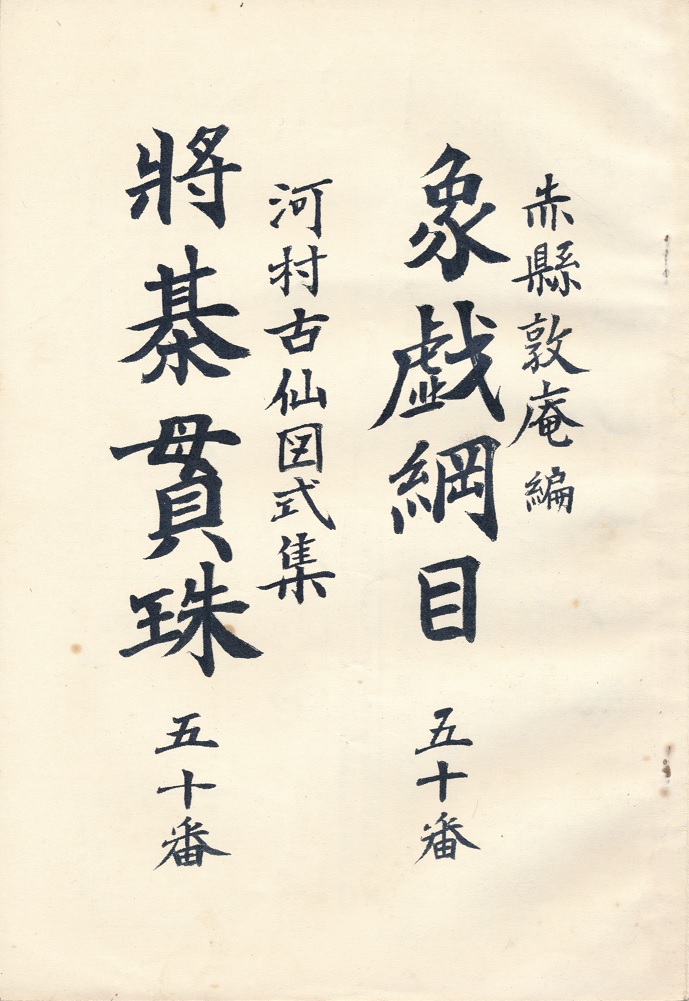 赤縣敦庵編
象戯綱目 五十番
河村古仙図式集
將棊貫珠 五十番